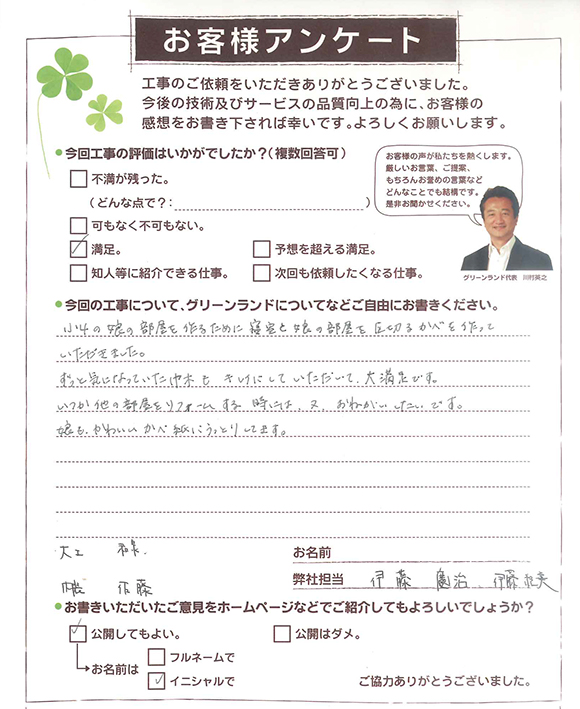 お客様アンケート
工事のご依頼をいただきありがとうございました。
今後の技術及びサービスの品質向上の為に、お客様の
感想をお書き下されば幸いです。よろしくお願いします。
●今回工事の評価はいかがでしたか?(複数回答可)
不満が残った。
(どんな点で?: )
可もなく不可もない。
満足。
予想を超える満足。
知人等に紹介できる仕事。
次回も依頼したくなる仕事。
お客様の声が私たちを熱くします。
厳しいお言葉、ご提案、
もちろんお誉めの言葉など
どんなことでも結構です。
是非お聞かせください。
グリーンランド代表 川村英之
●今回の工事について、グリーンランドについてなどご自由にお書きください。
小4の娘の部屋を作るために寝室と娘の部屋を区切るかべを作って
いただきました。
ずっと気になっていた巾木もキレイにしていただいて、大満足です。
いつか他の部屋をリフォームする時には、又、おねがいしたいです。
娘も、かわいいかべ紙にうっとりしてます。
大工
佐藤
お名前
弊社担当 伊藤 憲治、伊藤
●お書きいただいたご意見をホームページなどでご紹介してもよろしいでしょうか?
公開してもよい。
公開はダメ。
お名前は
フルネームで
イニシャルで
ご協力ありがとうございました。